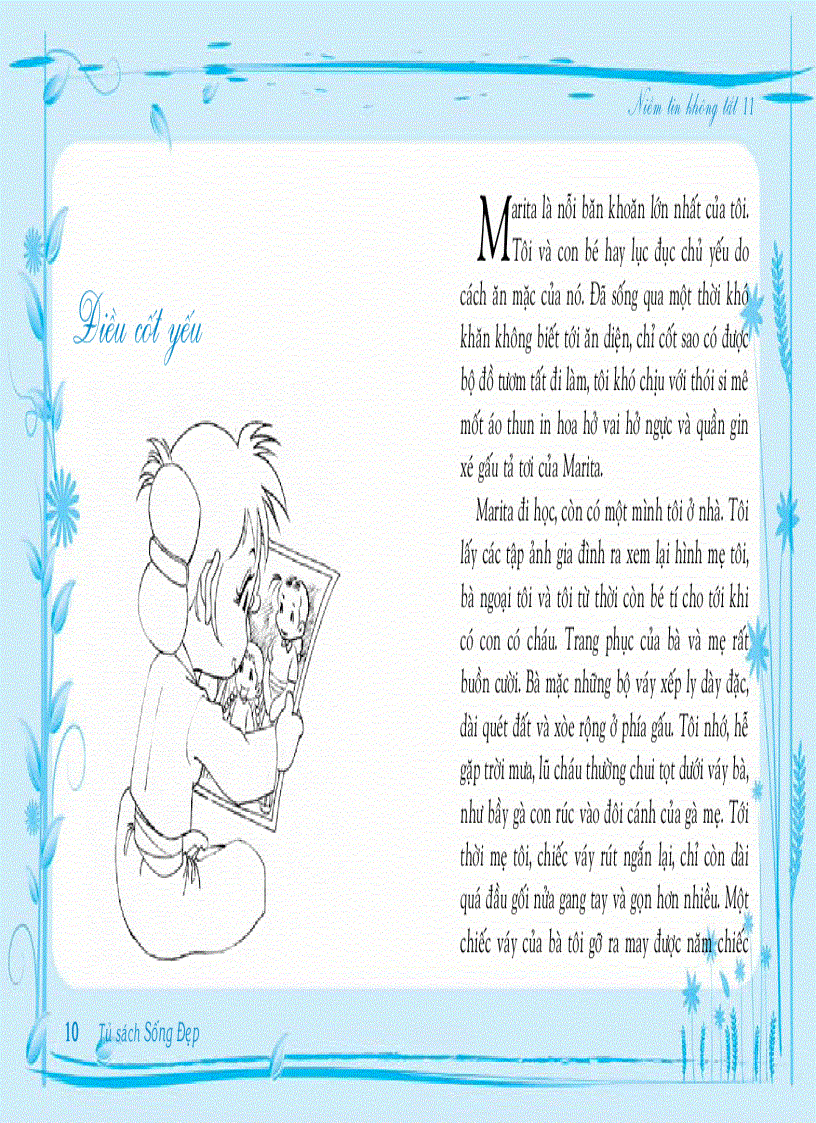 Niềm tin không tắt 11
Điều cốt yếu
Marita là nỗi băn khoăn lớn nhất của tôi.
Tôi và con bé hay lục đục chủ yếu do
cách ăn mặc của nó. Đã sống qua một thời khó
khăn không biết tới ăn diện, chỉ cốt sao có được
bộ đồ tươm tất đi làm, tôi khó chịu với thói si mê
mốt áo thun in hoa hở vai hở ngực và quần gin
xé gấu tả tơi của Marita.
Marita đi học, còn có một mình tôi ở nhà. Tôi
lấy các tập ảnh gia đình ra xem lại hình mẹ tôi,
bà ngoại tôi và tôi từ thời còn bé tí cho tới khi
có con có cháu. Trang phục của bà và mẹ rất
buồn cười. Bà mặc những bộ váy xếp ly dày đặc,
dài quét đất và xòe rộng ở phía gấu. Tôi nhớ, hễ
gặp trời mưa, lũ cháu thường chui tọt dưới váy bà,
như bầy gà con rúc vào đôi cánh của gà mẹ. Tới
thời mẹ tôi, chiếc váy rút ngắn lại, chỉ còn dài
quá đầu gối nửa gang tay và gọn hơn nhiều. Một
chiếc váy của bà tôi gỡ ra may được năm chiếc
10 Tủ sách Sống Đẹp